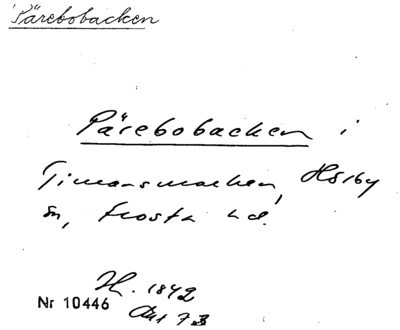 Pärebobacken
Pärebobacken i
Timansmarken, Hörby
sn, Frosta hd.
H. 1842
Akt 73
Nr 10446